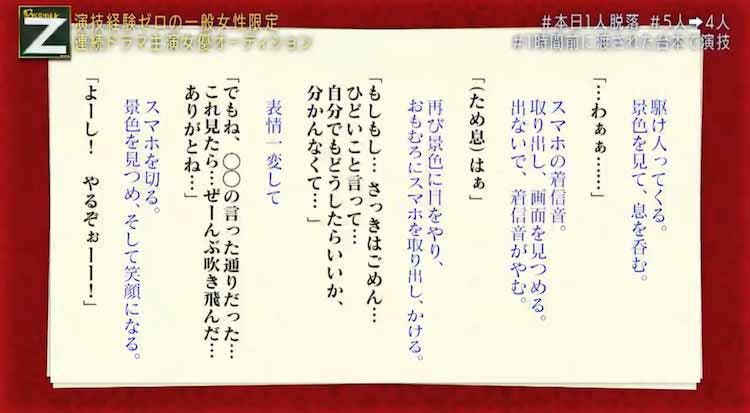 Z
演技経験ゼロの一般女性限定
連続ドラマ主演女優オーディション
#本日1人脱落 #5人➡4人
#1時間前に渡された台本で演技
駆け入ってくる。
景色を見て、息を呑む。
「…わぁぁ……」
スマホの着信音。
取り出し、画面を見つめる。
出ないで、着信音がやむ。
「(ため息)はぁ」
再び景色に目をやり、
おもむろにスマホを取り出し、かける。
「もしもし…さっきはごめん…
ひどいこと言って…
自分でもどうしたらいいか、
分かんなくて…」
表情一変して
「でもね、〇〇の言った通りだった…
これ見たら…ぜーんぶ吹き飛んだ…
ありがとね…」
スマホを切る。
景色を見つめ、そして笑顔になる。
「よーし! やるぞぉーー!」